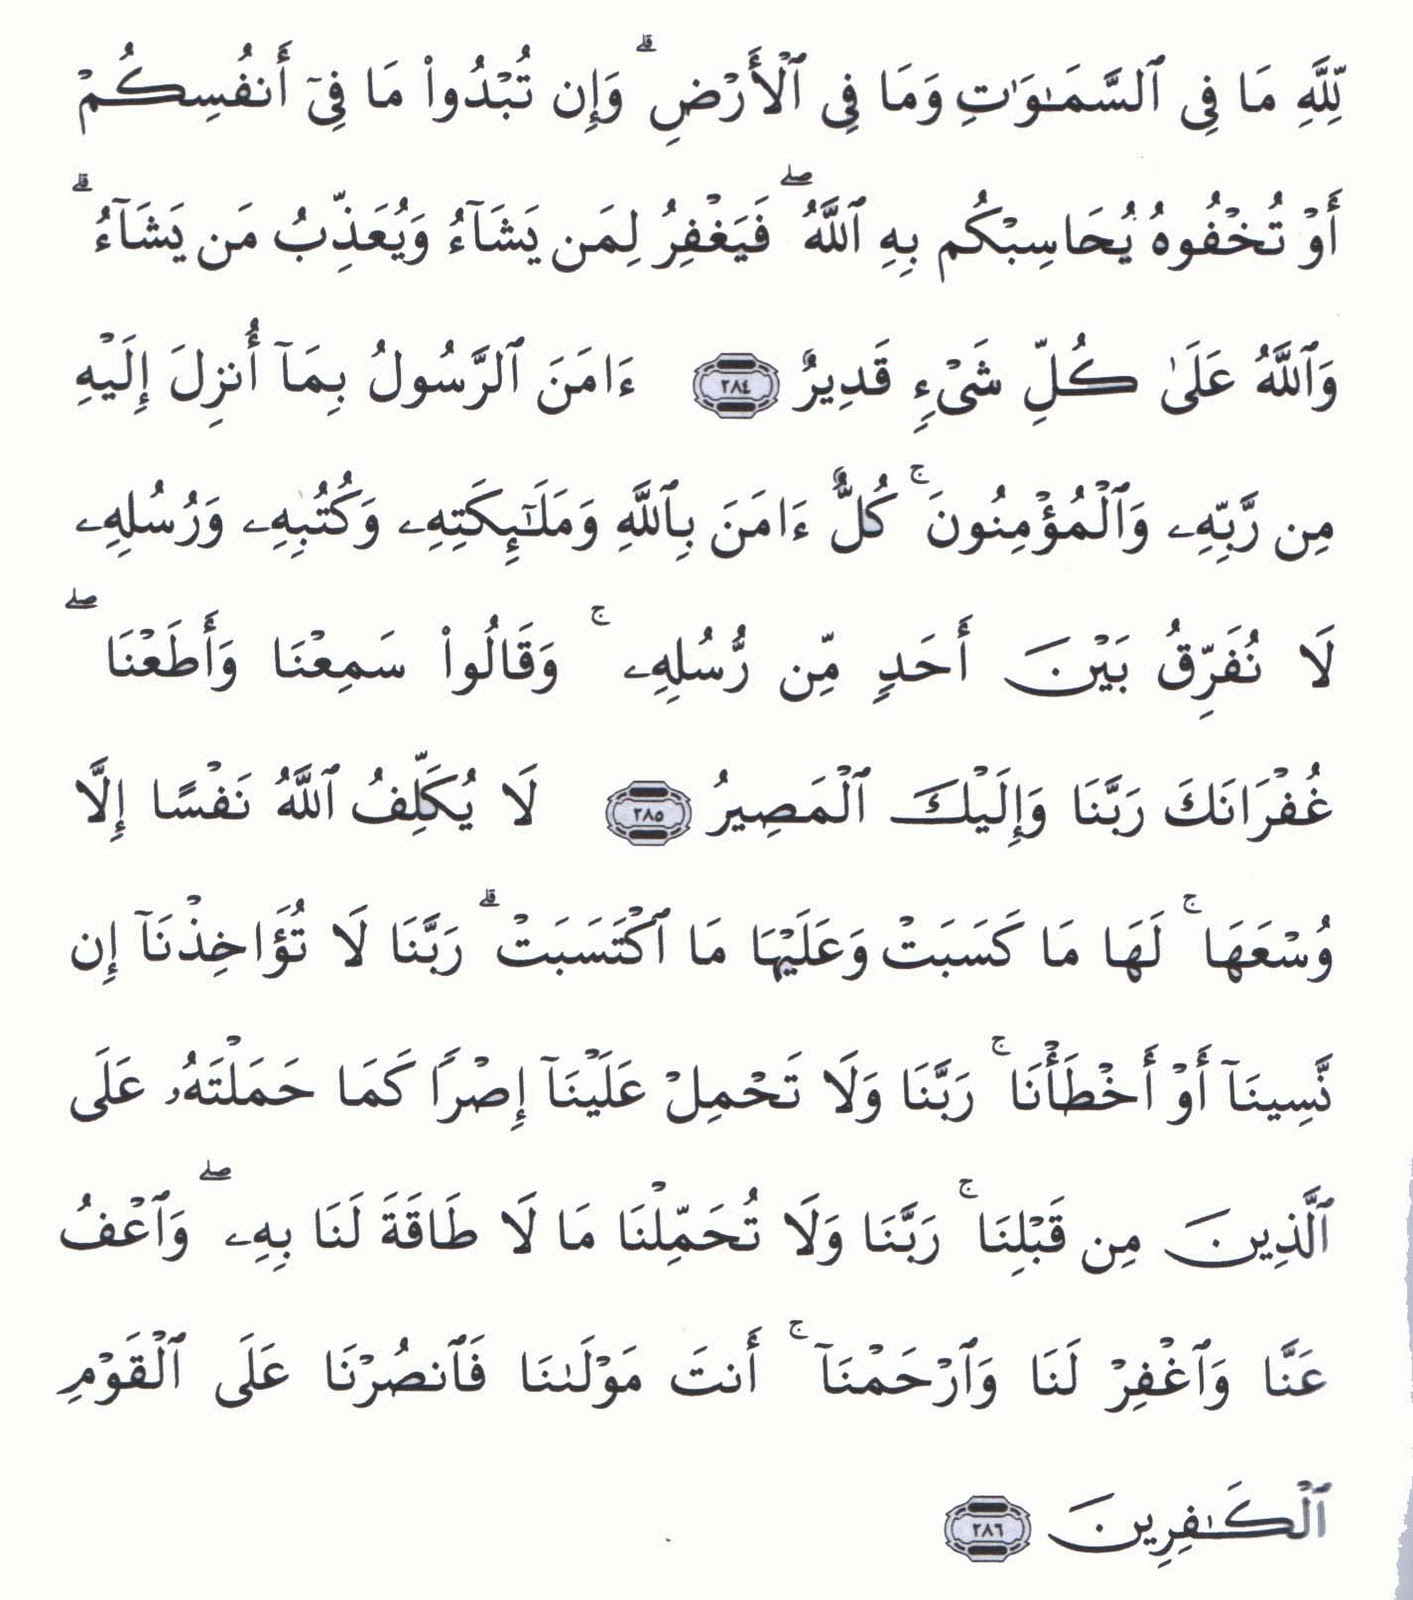 لِّلَّهِ مَا فِى ٱلسَّمَـٰوَٰتِ وَمَا فِى ٱلْأَرْضِ ۗ وَإِن تُبْدُوا۟ مَا فِىٓ أَنفُسِكُمْ
أَوْ تُخْفُوهُ يُحَاسِبْكُم بِهِ ٱللَّهُ ۖ فَيَغْفِرُ لِمَن يَشَآءُ وَيُعَذِّبُ مَن يَشَآءُ ۗ
وَٱللَّهُ عَلَىٰ كُلِّ شَىْءٍ قَدِيرٌ ٢٨٤ ءَامَنَ ٱلرَّسُولُ بِمَآ أُنزِلَ إِلَيْهِ
مِن رَّبِّهِۦ وَٱلْمُؤْمِنُونَ ۚ كُلٌّ ءَامَنَ بِٱللَّهِ وَمَلَـٰٓئِكَتِهِۦ وَكُتُبِهِۦ وَرُسُلِهِۦ
لَا نُفَرِّقُ بَيْنَ أَحَدٍ مِّن رُّسُلِهِۦ ۚ وَقَالُوا۟ سَمِعْنَا وَأَطَعْنَا ۖ
غُفْرَانَكَ رَبَّنَا وَإِلَيْكَ ٱلْمَصِيرُ ٢٨٥ لَا يُكَلِّفُ ٱللَّهُ نَفْسًا إِلَّا
وُسْعَهَا ۚ لَهَا مَا كَسَبَتْ وَعَلَيْهَا مَا ٱكْتَسَبَتْ ۗ رَبَّنَا لَا تُؤَاخِذْنَآ إِن
نَّسِينَآ أَوْ أَخْطَأْنَا ۚ رَبَّنَا وَلَا تَحْمِلْ عَلَيْنَآ إِصْرًا كَمَا حَمَلْتَهُۥ عَلَى
ٱلَّذِينَ مِن قَبْلِنَا ۚ رَبَّنَا وَلَا تُحَمِّلْنَا مَا لَا طَاقَةَ لَنَا بِهِۦ ۖ وَٱعْفُ
عَنَّا وَٱغْفِرْ لَنَا وَٱرْحَمْنَآ ۚ أَنتَ مَوْلَىٰنَا فَٱنصُرْنَا عَلَى ٱلْقَوْمِ
ٱلْكَـٰفِرِينَ ٢٨٦